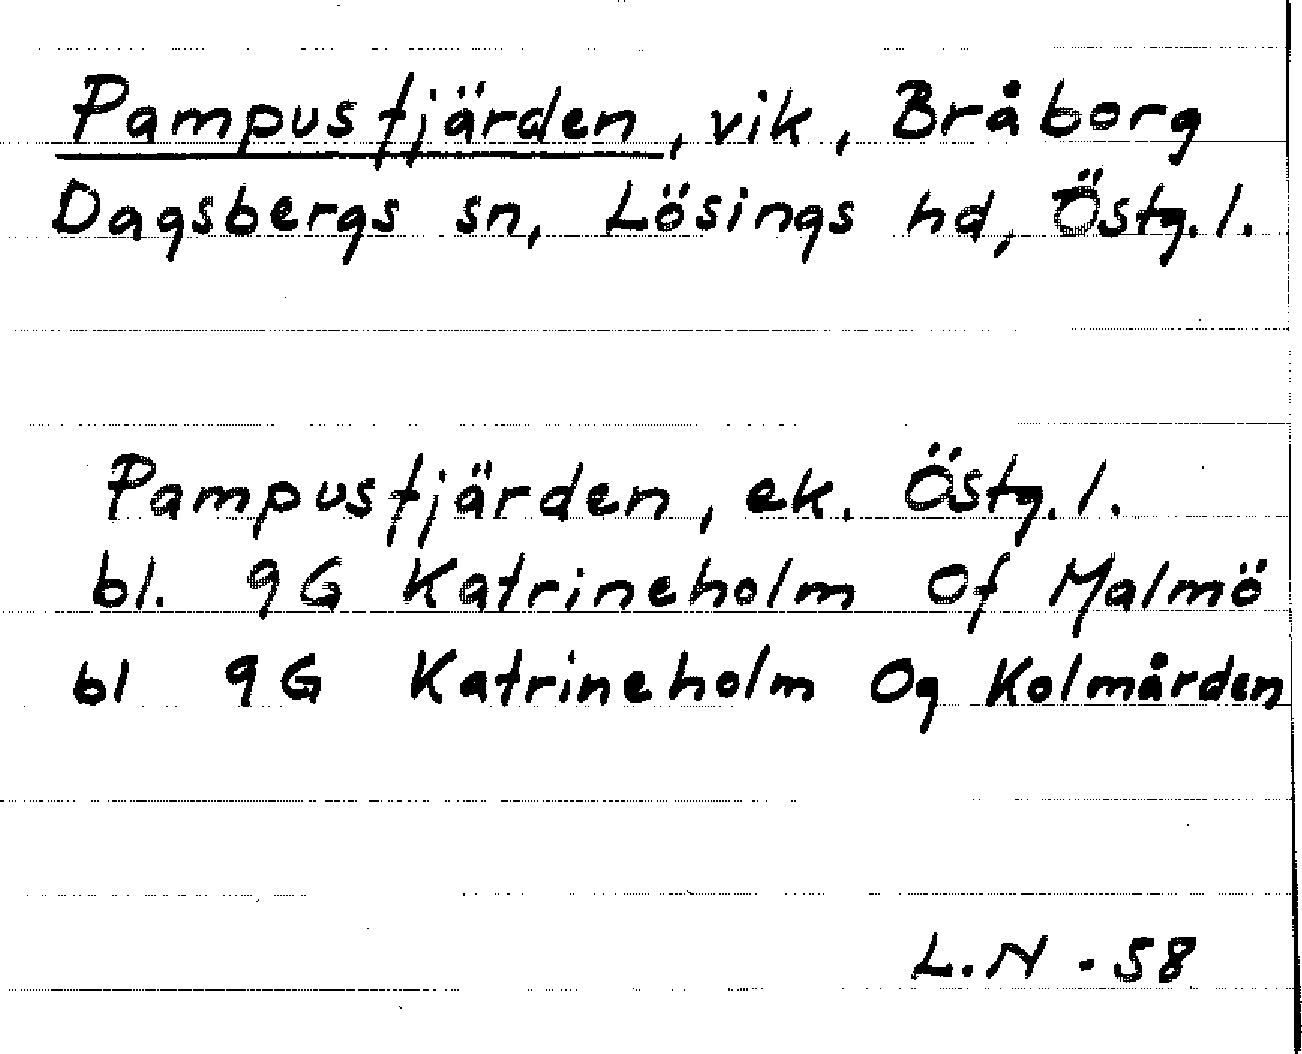 Pampusfjärden, vik, Bråborg
Dagsbergs sn, Lösings hd, Östg.l.
Pampusfjärden, ek. Östg.l.
bl. 9G Katrineholm Of Malmö
bl 9G Katrineholm Og Kolmården
L.N -58